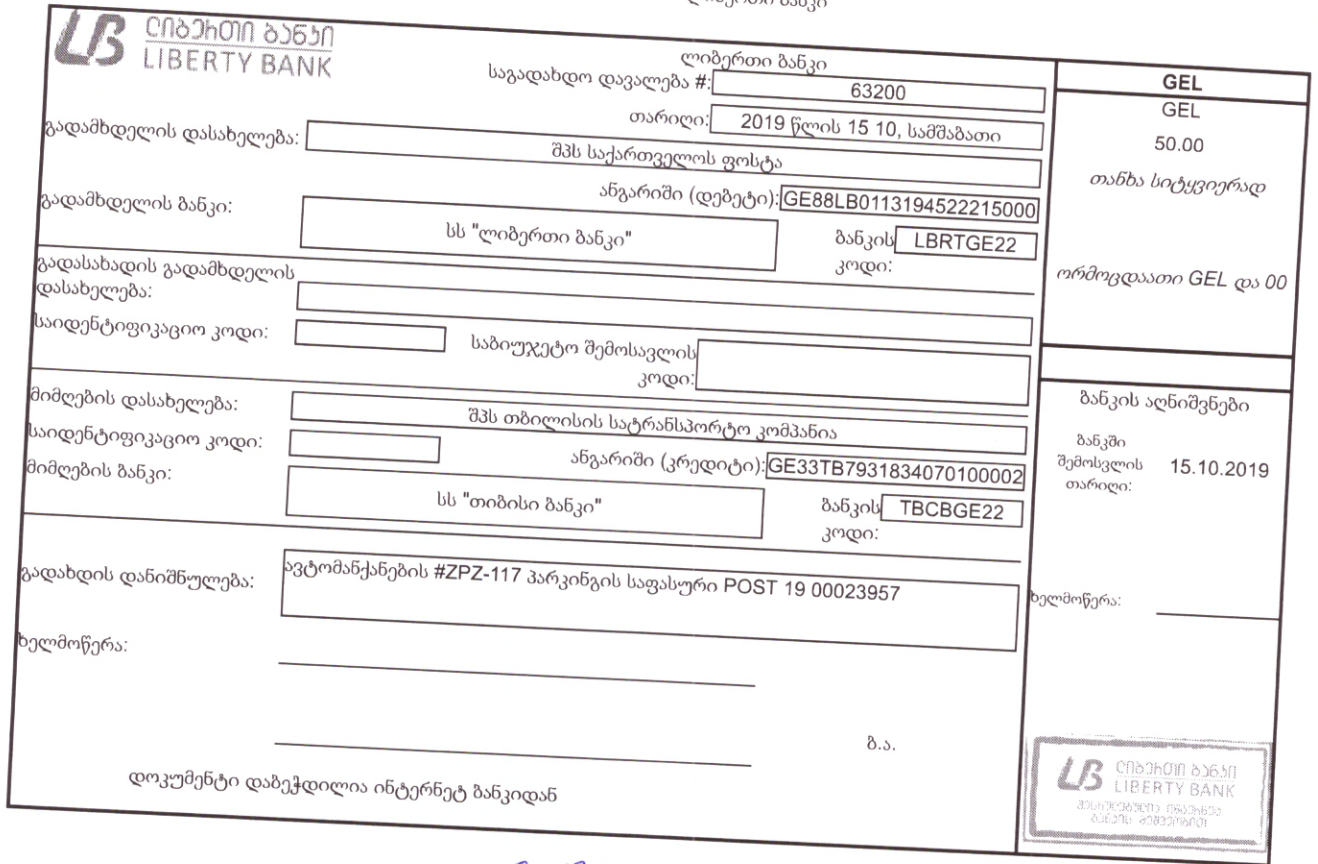 ლიბერთი ბანკი
ლიბერთი ბანკი
LB ლიბერთი ბანკი
LIBERTY BANK
ლიბერთი ბანკი
საგადახდო დავალება #: 63200
თარიღი: 2019 წლის 15 10, სამშაბათი
გადამხდელის დასახელება: შპს საქართველოს ფოსტა
ანგარიში (დებეტი): GE88LB0113194522215000
გადამხდელის ბანკი: სს "ლიბერთი ბანკი" ბანკის კოდი: LBRTGE22
გადასახადის გადამხდელის
დასახელება:
საიდენტიფიკაციო კოდი: საბიუჯეტო შემოსავლის
კოდი:
მიმღების დასახელება: შპს თბილისის სატრანსპორტო კომპანია
საიდენტიფიკაციო კოდი: ანგარიში (კრედიტი): GE33TB7931834070100002
მიმღების ბანკი: სს "თიბისი ბანკი" ბანკის კოდი: TBCBGE22
გადახდის დანიშნულება: ავტომანქანების #ZPZ-117 პარკინგის საფასური POST 19 00023957
ხელმოწერა:
ბ.ა.
დოკუმენტი დაბეჭდილია ინტერნეტ ბანკიდან
GEL
GEL
50.00
თანხა სიტყვიერად
ორმოცდაათი GEL და 00
ბანკის აღნიშვნები
ბანკში
შემოსვლის 15.10.2019
თარიღი:
ხელმოწერა:
LB ლიბერთი ბანკი
LIBERTY BANK